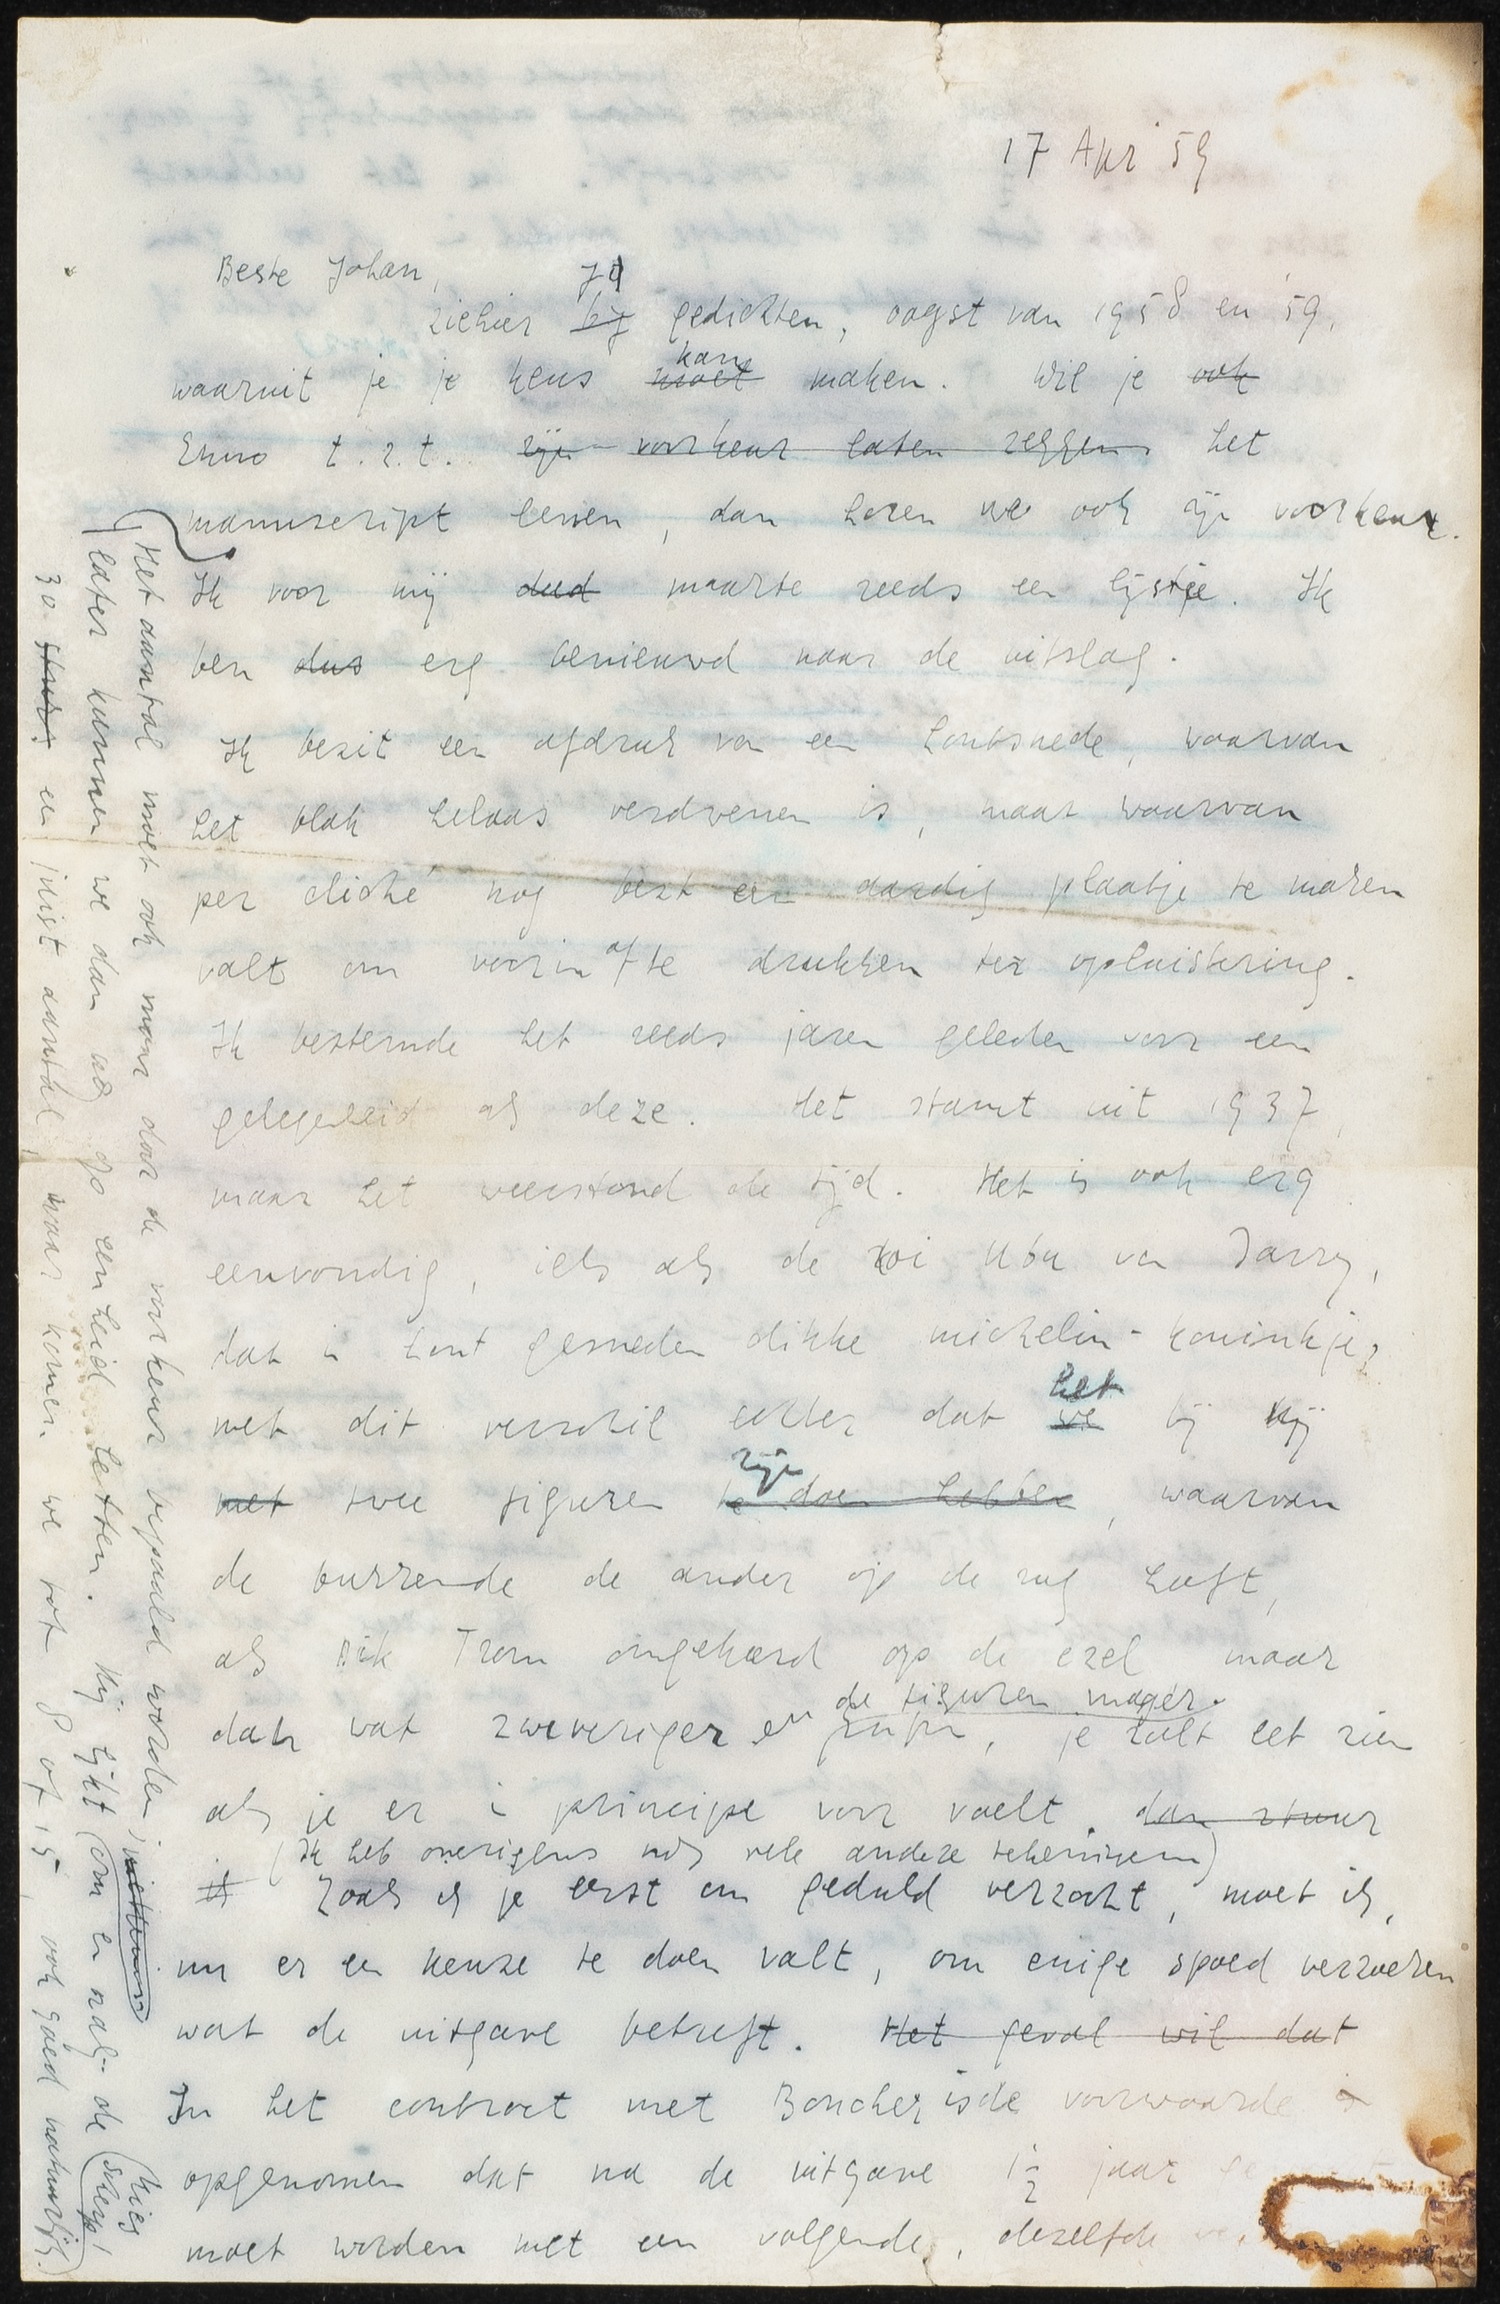 17 Apr '59
Beste Johan,
ziehier 67 71 gedichten, oogst van 1958 en '59,
waaruit je je keus moet kan maken. Wil je ook
Emmo t.z.t. zijn voorkeur laten zeggen het
manuscript lenen, dan horen we ook zijn voorkeur.
Ik voor mij deed maakte reeds een lijstje. Ik
ben dus erg benieuwd naar de uitslag.
Ik bezit een afdruk van een houtsnede, waarvan
het blok helaas verdwenen is, maar waarvan
per cliché nog best een aardig plaatje te maken
valt om voorin af te drukken ter opluistering.
Ik bestemde het reeds jaren geleden voor een
gelegenheid als deze. Het stamt uit 1937,
maar het weerstond de tijd. Het is ook erg
eenvoudig, iets als de roi Ubu van Jarry,
dat in hout gesneden dikke michelin-koninkje,
met dit verschil echter dat we het bij mij
met twee figuren te doen hebben zijn, waarvan
de burrende de ander op de rug heeft,
als Dik Trom omgekeerd op de ezel maar
dan wat zweveriger en de figuren mager. je zult het zien
als je er in principe voor voelt. dan stuur
(Ik heb overigens nog vele andere tekeningen)
Zoals ik je eerst om geduld verzocht, moet ik,
nu er een keuze te doen valt, om enige spoed verzoeken
wat de uitgave betreft. Het geval wil dat
In het contract met Boucher is de voorwaarde is
opgenomen dat na de uitgave 1½ jaar
moet worden met een volgende, dezelfde
Het aantal moet ook maar door de voorkeur bepaald worden;
later kunnen we dan nog op eenheid letten. Mij lijkt (om en nabij de
30 stuks een juist aantal, maar komen we tot 8 of 15, ook goed natuurlijk.)
(kies
scherp!